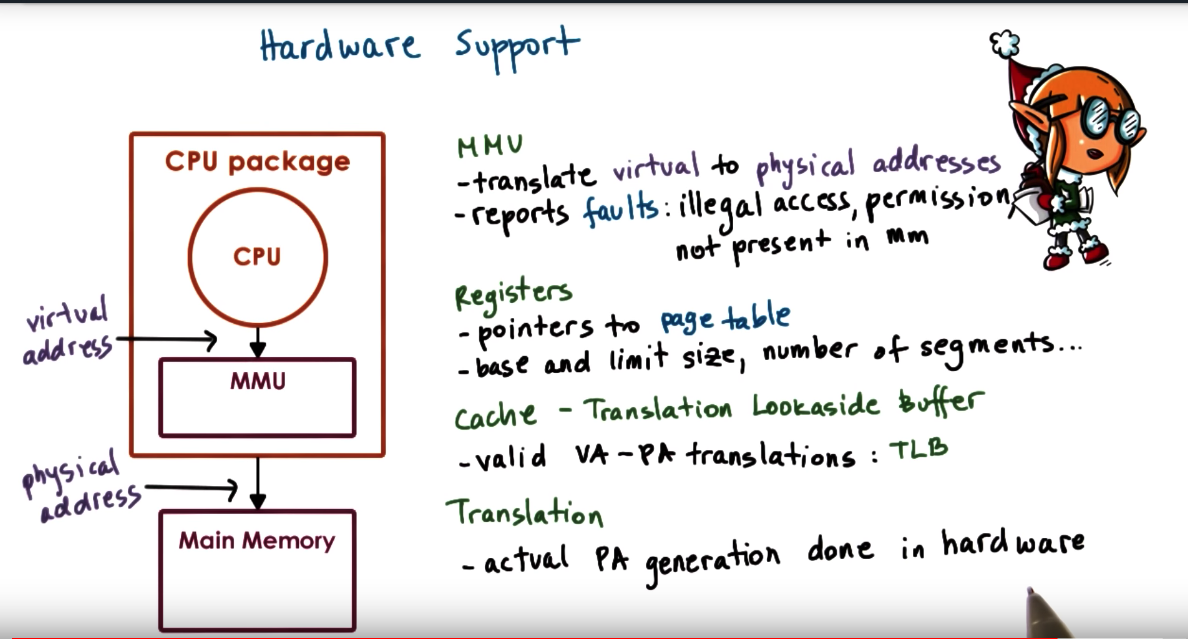 Hardware Support
CPU package
CPU
virtual
address
MMU
physical
address
Main Memory
MMU
-translate virtual to physical addresses
-reports faults: illegal access, permission,
not present in mm
Registers
- pointers to page table
- base and limit size, number of segments...
Cache - Translation Lookaside Buffer
- valid VA-PA translations : TLB
Translation
- actual PA generation done in hardware